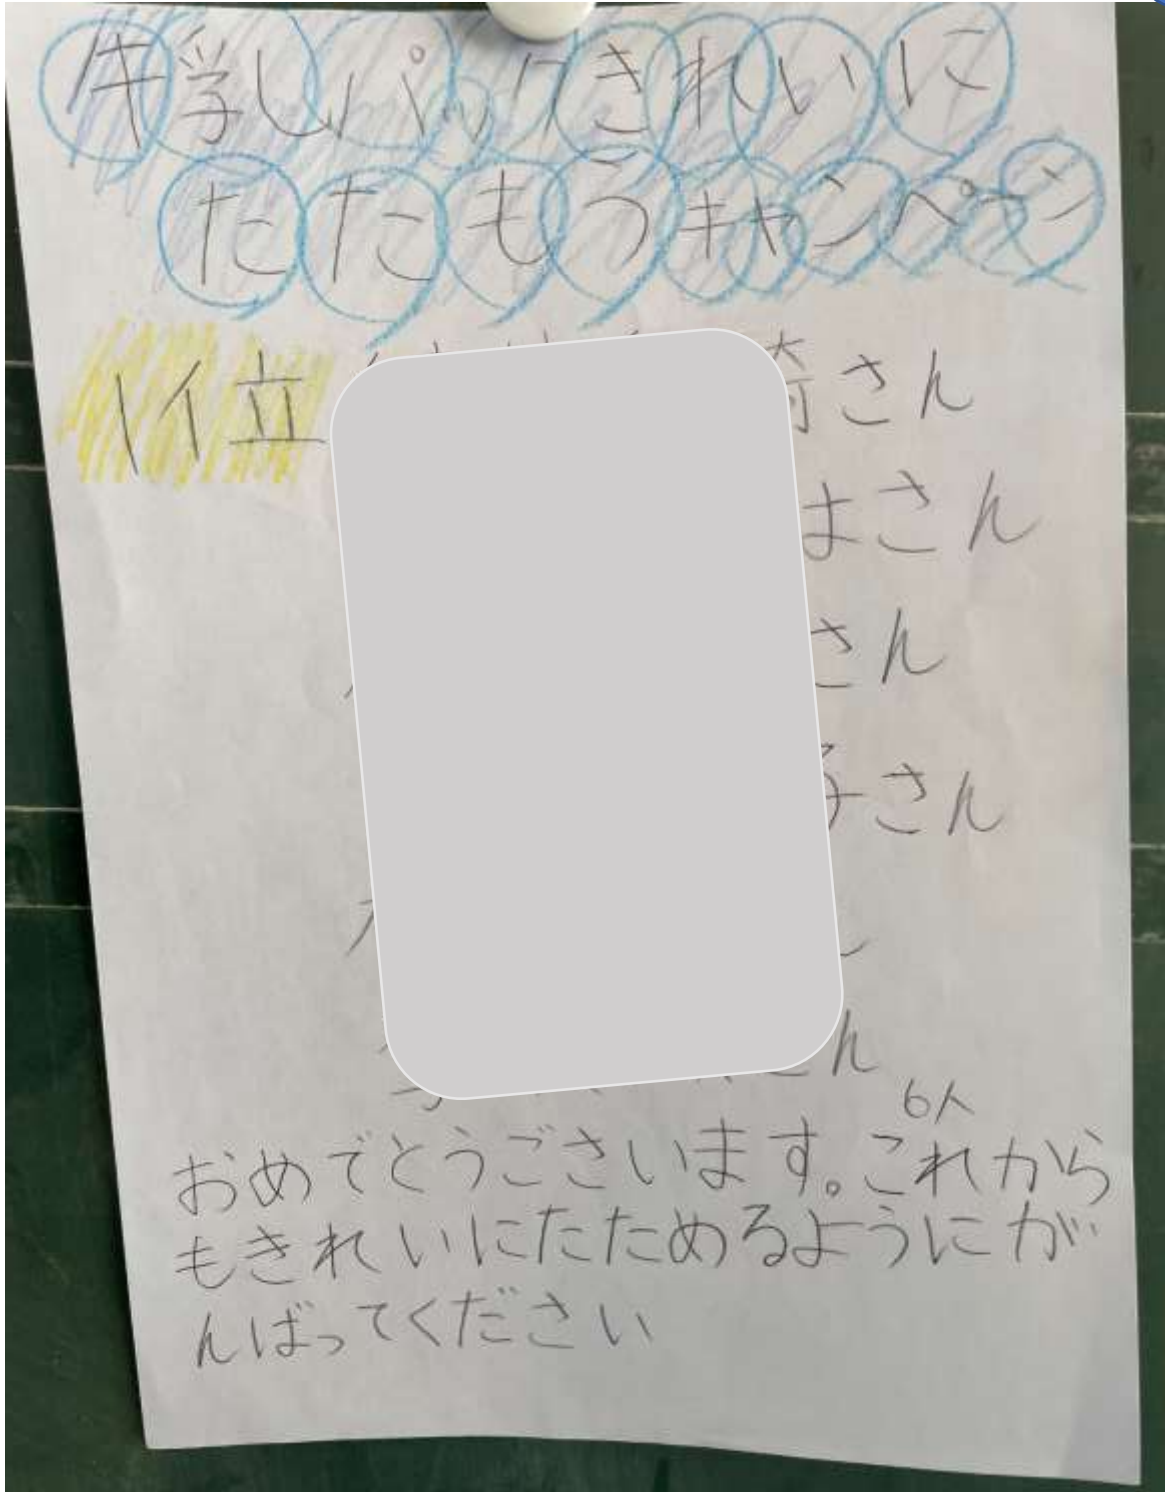 牛乳パックきれいに
たたもうキャンペーン
1位
さん
さん
さん
子さん
ん
6人
おめでとうございます。これから
もきれいにたためるようにが
んばってください